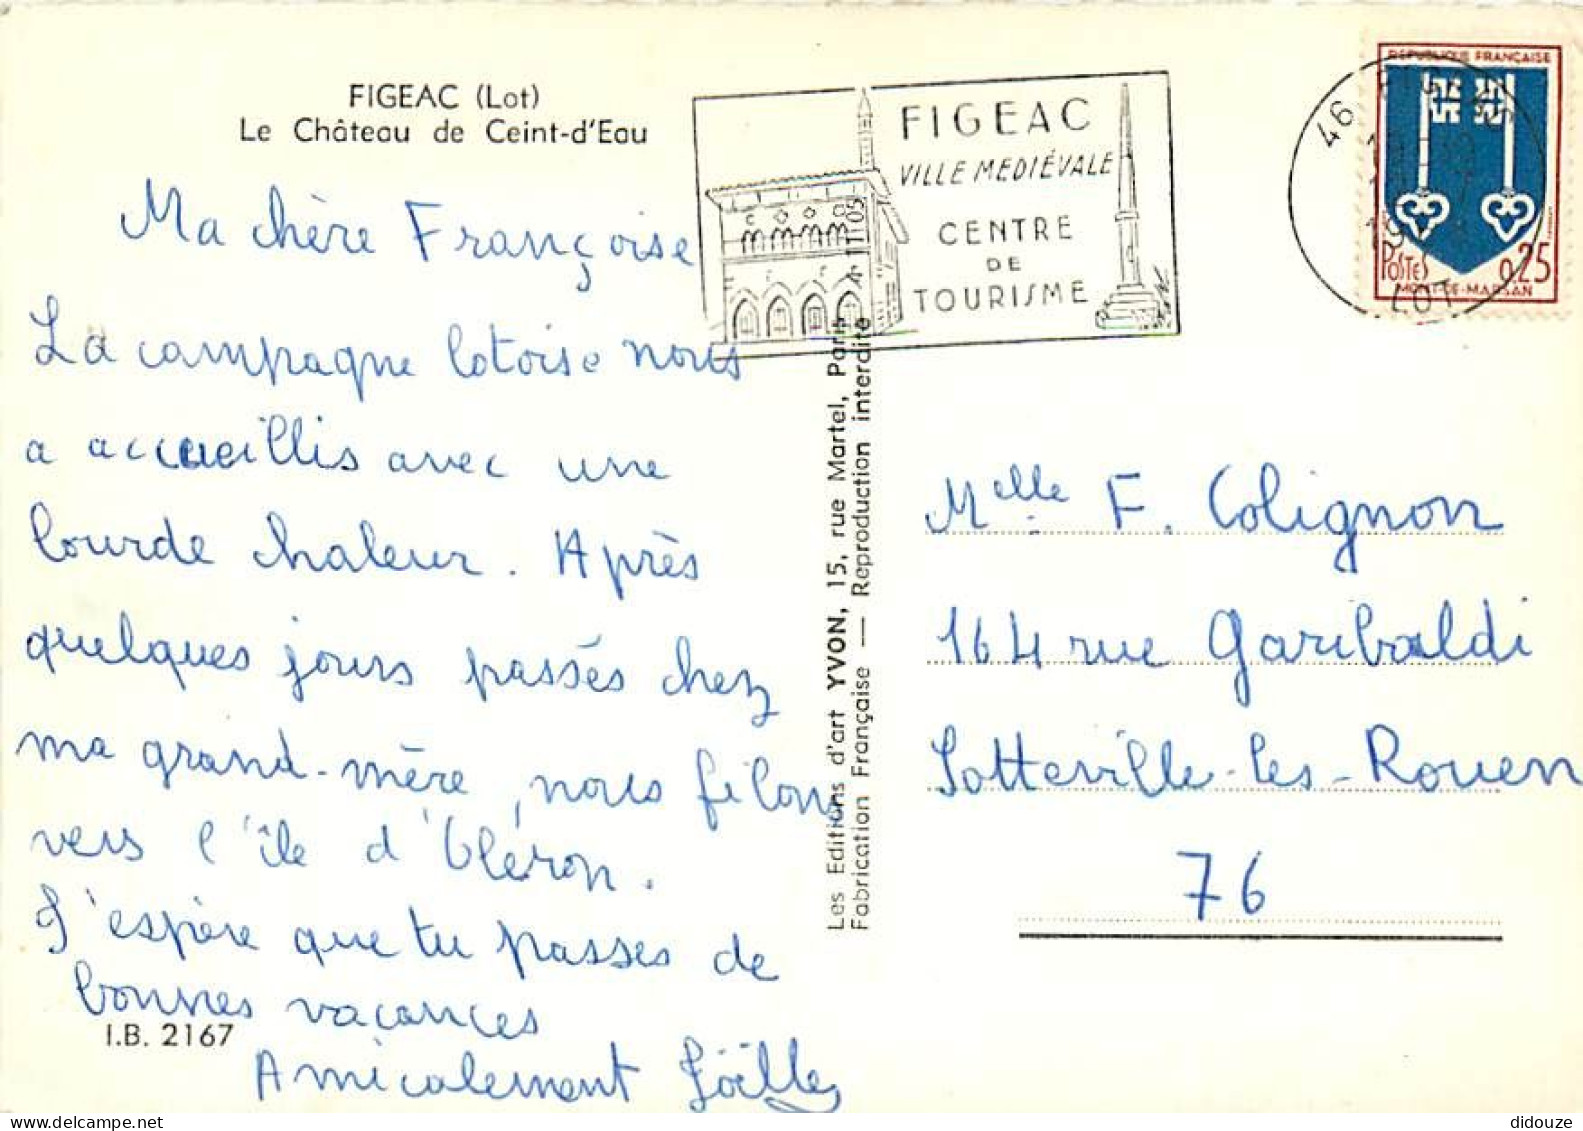 FIGEAC (Lot)
Le Château de Ceint-d'Eau
Ma chère Françoise
La campagne lotoise nous
a accueillis avec une
lourde chaleur. Après
quelques jours passés chez
ma grand-mère, nous filons
vers l'île d'Oléron.
J'espère que tu passes de
bonnes vacances
I.B. 2167
Amicalement Joëlle
Les Editions d'art YVON, 15, rue Martel, Paris
Fabrication Française — Reproduction interdite
FIGEAC
VILLE MEDIÉVALE
CENTRE
DE
TOURISME
46
LOT
REPUBLIQUE FRANÇAISE
POSTES
0,25
MONT-DE-MARSAN
Melle F. Colignon
164 rue Garibaldi
Sotteville-les-Rouen
76
didouze